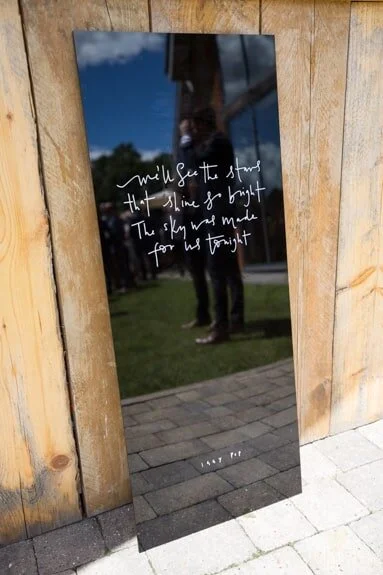 we'll see the stars
that shine so bright
The sky was made
for us tonight
IGGY POP